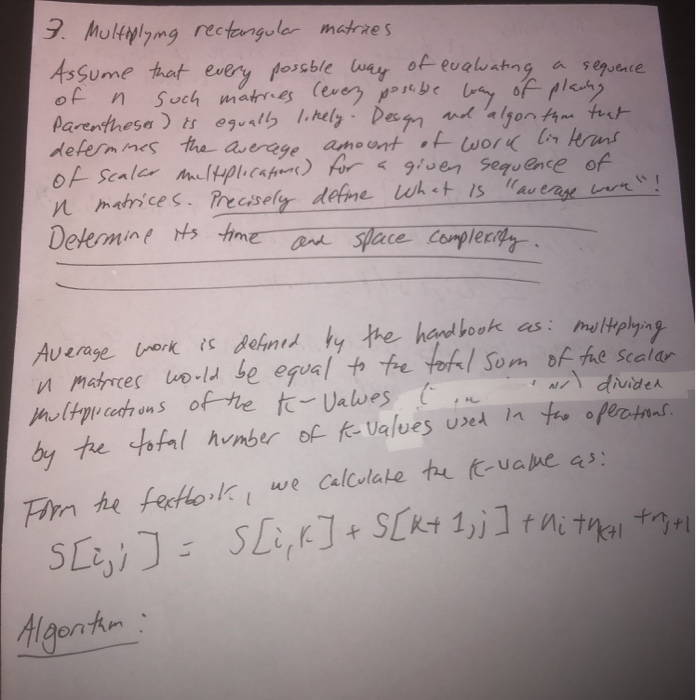 3. Multiplying rectangular matrices
Assume that every possible way of evaluating a sequence
of n such matrices (every possible way of placing
Parentheses) is equally likely. Design and algorithm that
determines the average amount of work (in terms
of scalar multiplications) for a given sequence of
n matrices. Precisely define what is "average work"!
Determine its time and space complexity.
Average work is defined by the handbook as: multiplying
n matrices would be equal to the total sum of the scalar
multiplications of the K-values divided
by the total number of K-values used in the operations.
From the textbook, we calculate the K-value as:
S[i,j] = S[i,K] + S[K+1,j] + ni + nk+1 + nj+1
Algorithm: